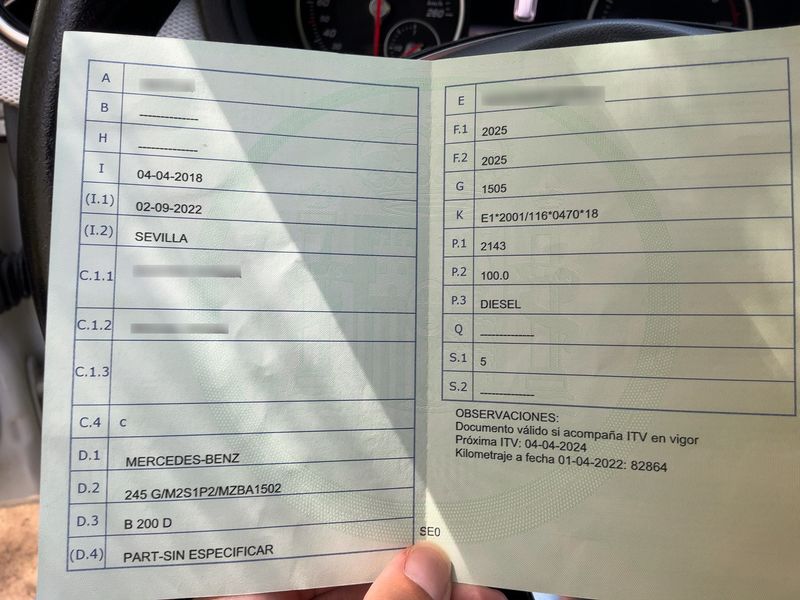 A
B --------------
H --------------
I 04-04-2018
(I.1) 02-09-2022
(I.2) SEVILLA
C.1.1
C.1.2
C.1.3
C.4 C
D.1 MERCEDES-BENZ
D.2 245 G/M2S1P2/MZBA1502
D.3 B 200 D
(D.4) PART-SIN ESPECIFICAR
E
F.1 2025
F.2 2025
G 1505
K E1*2001/116*0470*18
P.1 2143
P.2 100.0
P.3 DIESEL
Q --------------
S.1 5
S.2 --------------
OBSERVACIONES:
Documento válido si acompaña ITV en vigor
Próxima ITV: 04-04-2024
Kilometraje a fecha 01-04-2022: 82864
SE0